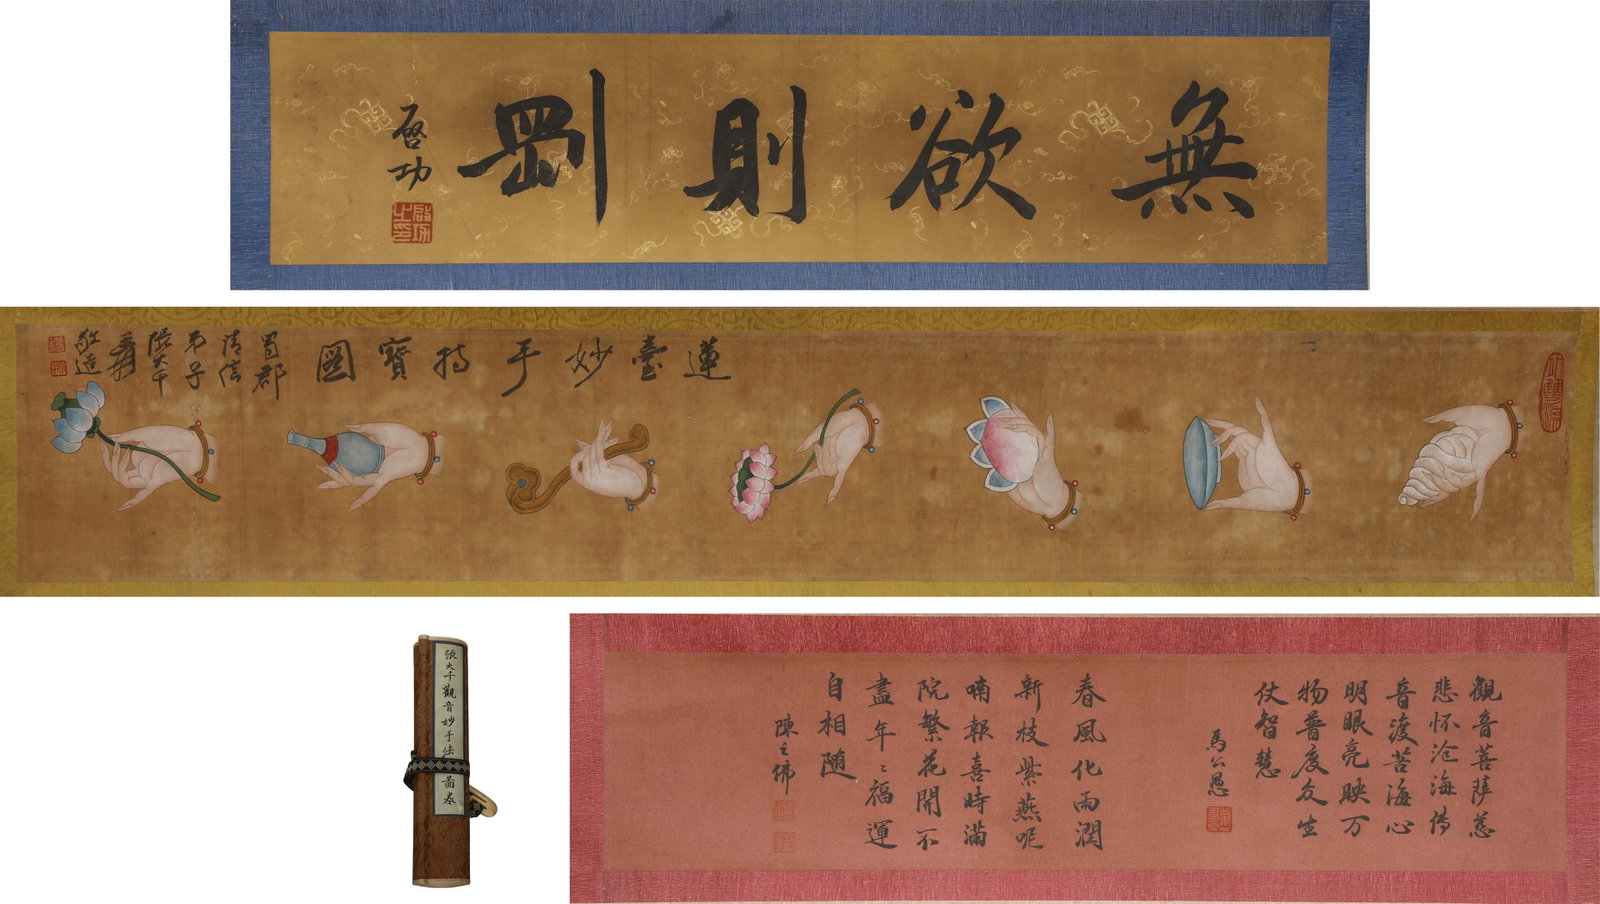 無欲則剛
啓功
啟功之印
蓮臺妙手持寶圖
蜀郡
清信
弟子
張大千
爰
敬造
張大千觀音妙手法
圖卷
觀音菩薩慈
悲怀沧海传
音渡苦海心
明眼亮映万
物普度众生
仗智慧
馬公愚
春風化雨潤
新枝紫燕呢
喃報喜時滿
院繁花開不
盡年々福運
自相随
陳之佛